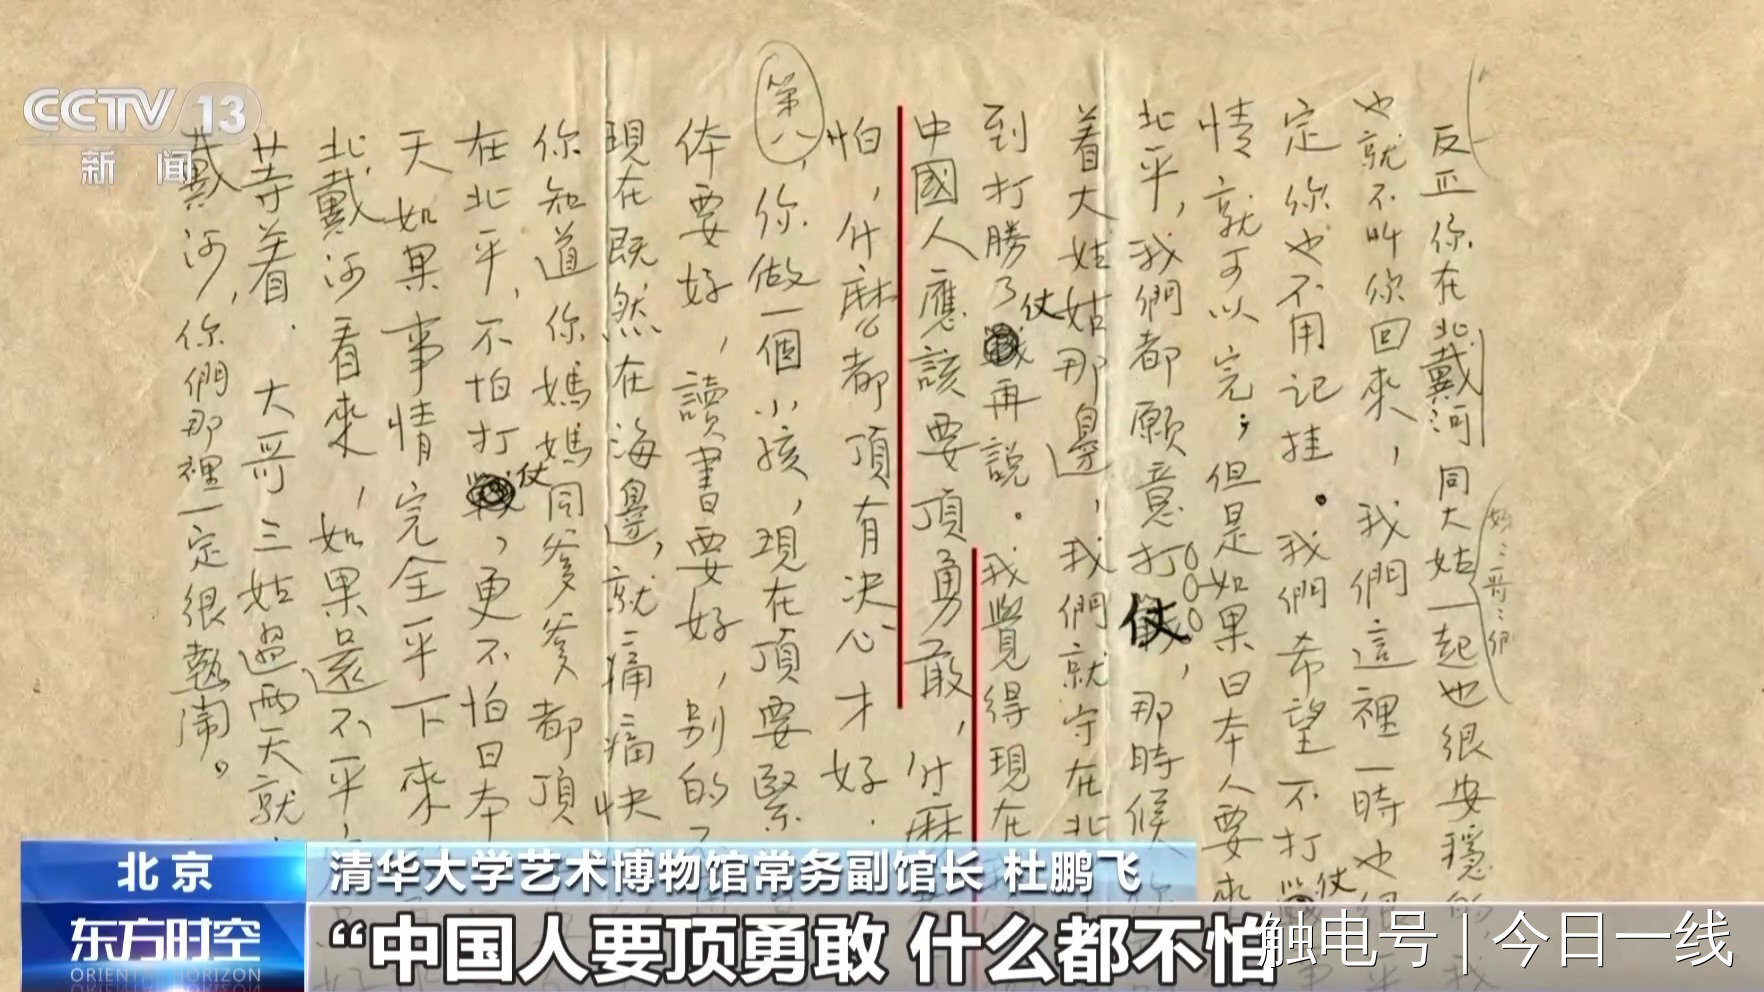 CCTV 13
新闻
反正你在北戴河同大姑一起也很安穩的
也就不叫你回來，我們這裡一時也很平
定你也不用记挂。我們希望不打仗
情就可以完；但是如果日本人要來
北平，我們都願意打仗，那時候你
着大姑姑那邊，我們就守在北
到打勝了仗再説。我覺得現在
中國人應該要頂勇敢，什麼
怕，什麼都頂有决心才好．
第八，你做一個小孩，現在頂要緊
体要好，讀書要好，別的
現在既然在海邊，就痛痛快
你知道你媽媽同爹爹都頂
在北平，不怕打仗，更不怕日本
天如果事情完全平下來
北戴河看來，如果還不平
廿等着．大哥三姑過兩天就
戴河，你們那裡一定很熱鬧。
北京
清华大学艺术博物馆常务副馆长 杜鹏飞
东方时空
ORIENTAL HORIZON
“中国人要顶勇敢 什么都不怕
触电号|今日一线